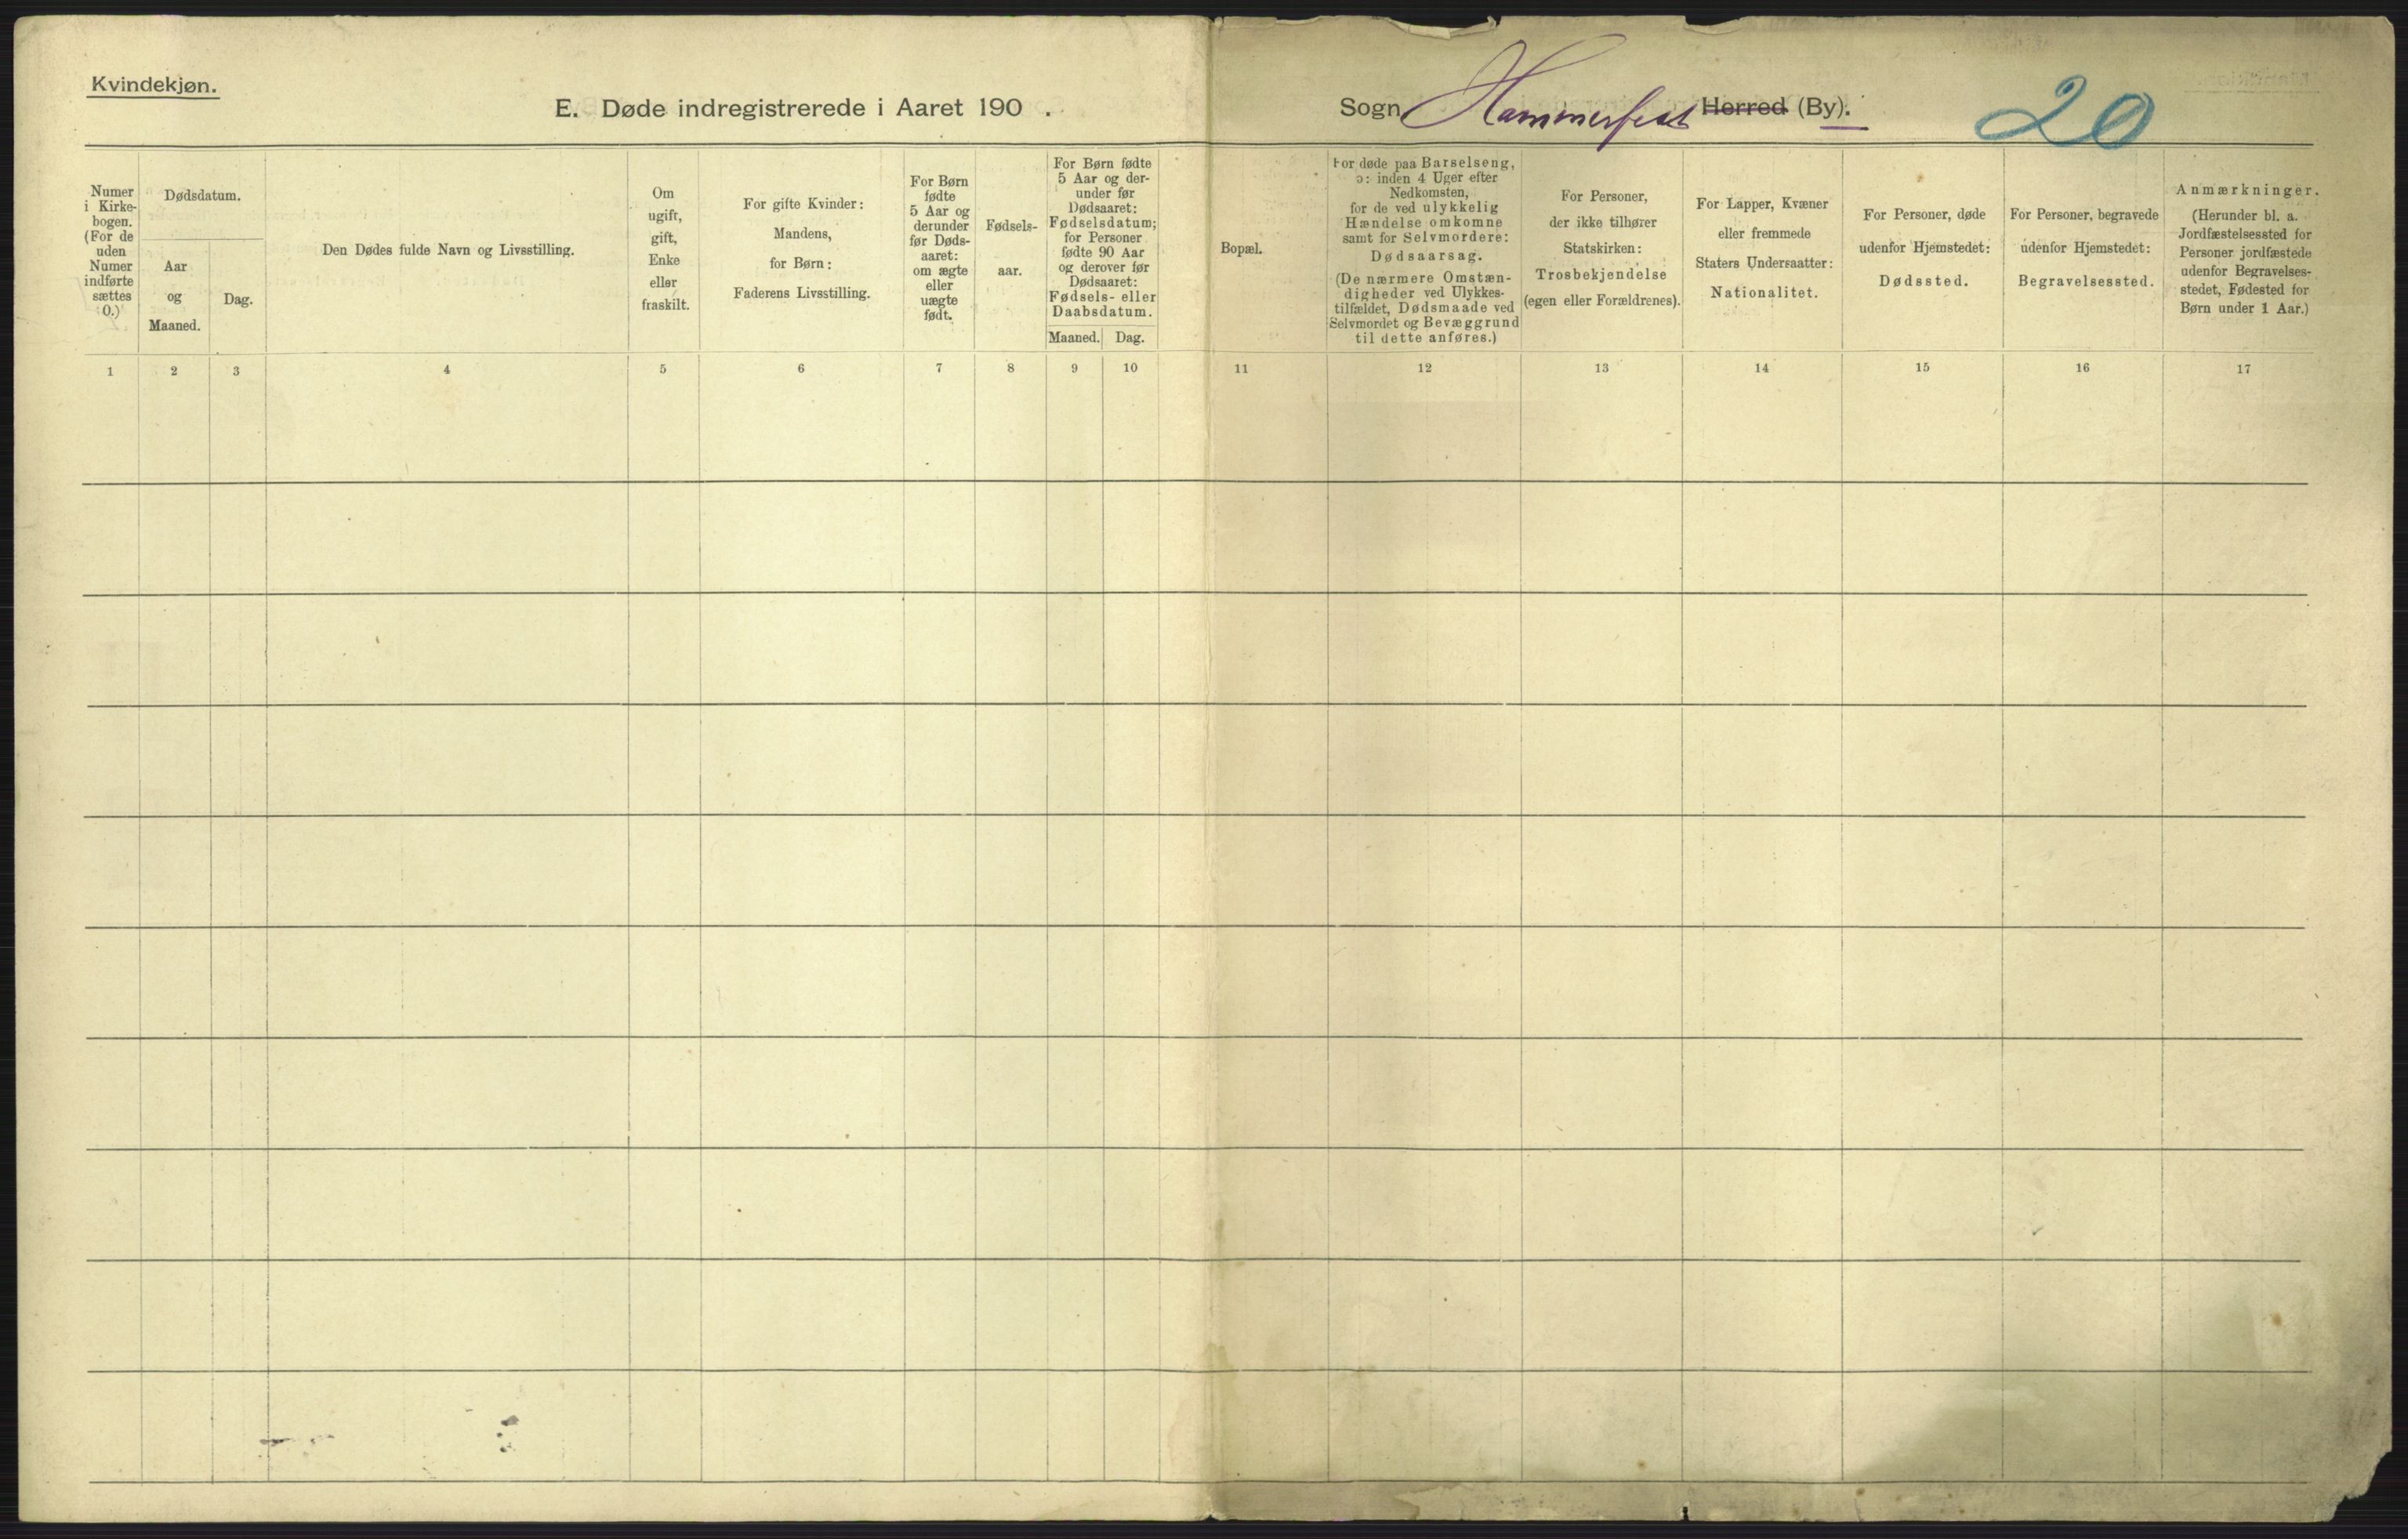 Kvindekjøn.
E. Døde indregistrerede i Aaret 190 .
Sogn, Hammerfest Herred (By).
20
Numer
i Kirke-
bogen.
(For de
uden
Numer
indførte
sættes
0.)
Dødsdatum.
Aar
og
Maaned.
Dag.
Den Dødes fulde Navn og Livsstilling.
Om
ugift,
gift,
Enke
eller
fraskilt.
For gifte Kvinder:
Mandens,
for Børn:
Faderens Livsstilling.
For Børn
fødte
5 Aar og
derunder
før Døds-
aaret:
om ægte
eller
uægte
født.
Fødsels-
aar.
For Børn fødte
5 Aar og der-
under før
Dødsaaret:
Fødselsdatum;
for Personer
fødte 90 Aar
og derover før
Dødsaaret:
Fødsels- eller
Daabsdatum.
Maaned. Dag.
Bopæl.
For døde paa Barselseng,
ɔ: inden 4 Uger efter
Nedkomsten,
for de ved ulykkelig
Hændelse omkomne
samt for Selvmordere:
Dødsaarsag.
(De nærmere Omstæn-
digheder ved Ulykkes-
tilfældet, Dødsmaade ved
Selvmordet og Bevæggrund
til dette anføres.)
For Personer,
der ikke tilhører
Statskirken:
Trosbekjendelse
(egen eller Forældrenes).
For Lapper, Kvæner
eller fremmede
Staters Undersaatter:
Nationalitet.
For Personer, døde
udenfor Hjemstedet:
Dødssted.
For Personer, begravede
udenfor Hjemstedet:
Begravelsessted.
Anmærkninger.
(Herunder bl. a.
Jordfæstelsessted for
Personer jordfæstede
udenfor Begravelses-
stedet, Fødested for
Børn under 1 Aar.)
1 2 3 4 5 6 7 8 9 10 11 12 13 14 15 16 17